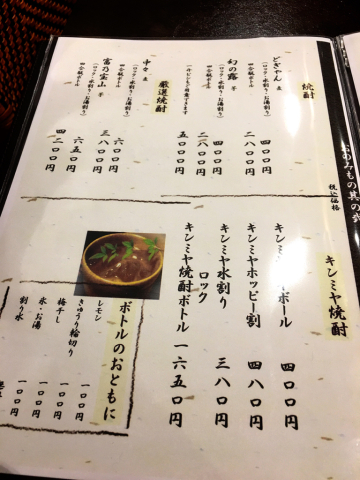 おのみもの其の
税込価格
焼酎
どぎゃん 麦
(ロック・水割り・お湯割り)
四〇〇円
四合瓶ボトル
二八〇〇円
幻の露 芋
(ロック・水割り・お湯割り)
四〇〇円
四合瓶ボトル
二八〇〇円
一升ビンもご用意できます
五〇〇〇円
厳選焼酎
中々 麦
(ロック・水割り・お湯割り)
六〇〇円
四合瓶ボトル
三八〇〇円
富乃宝山 芋
(ロック・水割り・お湯割り)
六五〇円
四合瓶ボトル
四二〇〇円
キンミヤ焼酎
ボール
四〇〇円
キンミヤホッピー割
四八〇円
キンミヤ水割り
ロック
三八〇円
キンミヤ焼酎ボトル
一六五〇円
ボトルのおともに
レモン
一〇〇円
きゅうり輪切り
一〇〇円
梅干し
一〇〇円
氷・お湯
一〇〇円
割り水